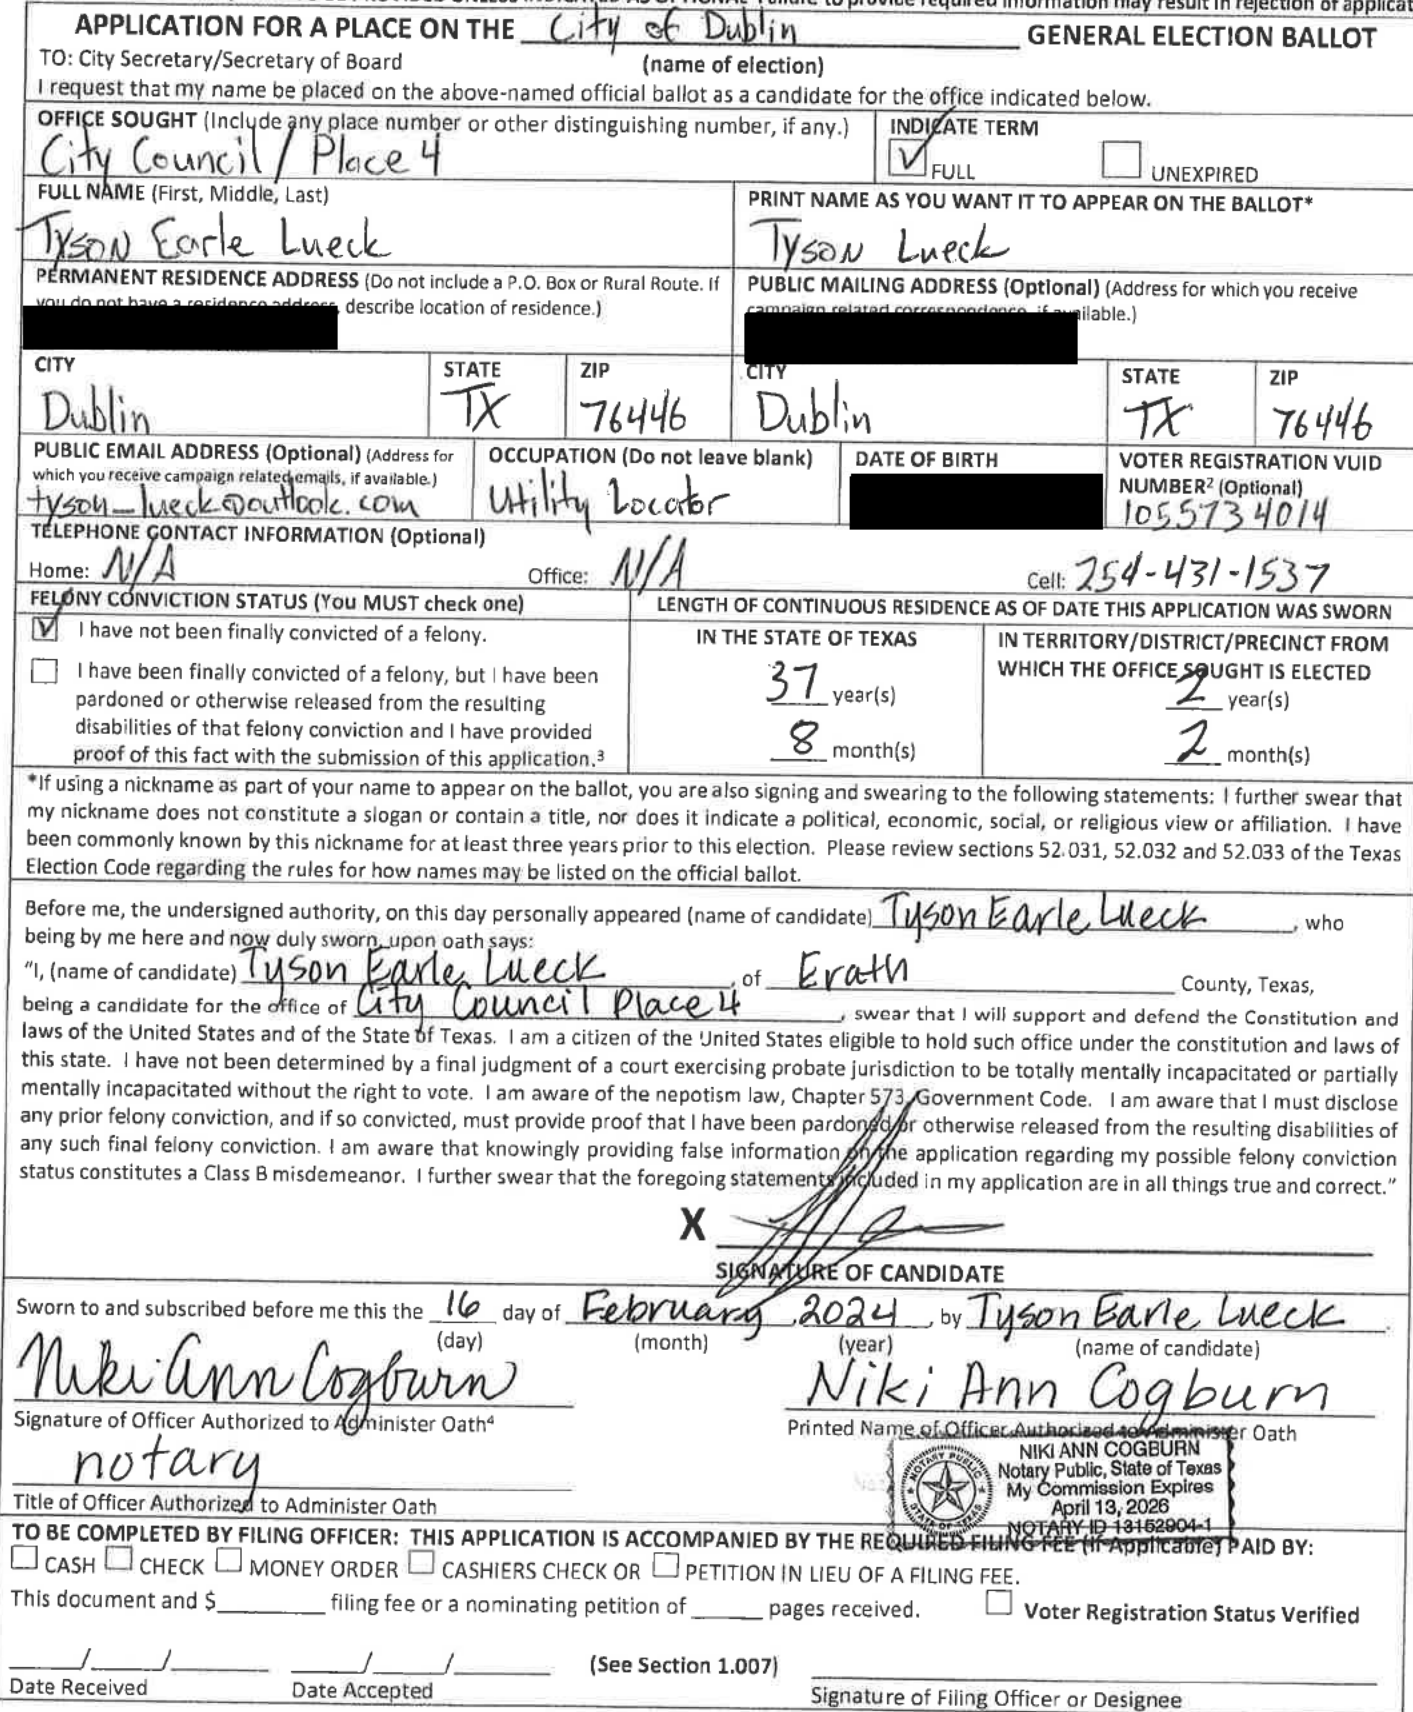 required information may result in rejection of applicat
APPLICATION FOR A PLACE ON THE City of Dublin GENERAL ELECTION BALLOT
TO: City Secretary/Secretary of Board (name of election)
I request that my name be placed on the above-named official ballot as a candidate for the office indicated below.
OFFICE SOUGHT (Include any place number or other distinguishing number, if any.) INDICATE TERM
City Council / Place 4 FULL UNEXPIRED
FULL NAME (First, Middle, Last) PRINT NAME AS YOU WANT IT TO APPEAR ON THE BALLOT*
Tyson Earle Lueck Tyson Lueck
PERMANENT RESIDENCE ADDRESS (Do not include a P.O. Box or Rural Route. If PUBLIC MAILING ADDRESS (Optional) (Address for which you receive
you do not have a residence address, describe location of residence.) campaign related correspondence, if available.)
CITY STATE ZIP CITY STATE ZIP
Dublin TX 76446 Dublin TX 76446
PUBLIC EMAIL ADDRESS (Optional) (Address for OCCUPATION (Do not leave blank) DATE OF BIRTH VOTER REGISTRATION VUID
which you receive campaign related emails, if available.) NUMBER² (Optional)
tyson_lueck@outlook.com Utility Locator 1055734014
TELEPHONE CONTACT INFORMATION (Optional)
Home: N/A Office: N/A Cell: 254-431-1537
FELONY CONVICTION STATUS (You MUST check one) LENGTH OF CONTINUOUS RESIDENCE AS OF DATE THIS APPLICATION WAS SWORN
I have not been finally convicted of a felony. IN THE STATE OF TEXAS IN TERRITORY/DISTRICT/PRECINCT FROM
I have been finally convicted of a felony, but I have been WHICH THE OFFICE SOUGHT IS ELECTED
pardoned or otherwise released from the resulting 37 year(s) 2 year(s)
disabilities of that felony conviction and I have provided
proof of this fact with the submission of this application.³ 8 month(s) 2 month(s)
*If using a nickname as part of your name to appear on the ballot, you are also signing and swearing to the following statements: I further swear that
my nickname does not constitute a slogan or contain a title, nor does it indicate a political, economic, social, or religious view or affiliation. I have
been commonly known by this nickname for at least three years prior to this election. Please review sections 52.031, 52.032 and 52.033 of the Texas
Election Code regarding the rules for how names may be listed on the official ballot.
Before me, the undersigned authority, on this day personally appeared (name of candidate) Tyson Earle Lueck, who
being by me here and now duly sworn, upon oath says:
"I, (name of candidate) Tyson Earle Lueck, of Erath County, Texas,
being a candidate for the office of City Council Place 4, swear that I will support and defend the Constitution and
laws of the United States and of the State of Texas. I am a citizen of the United States eligible to hold such office under the constitution and laws of
this state. I have not been determined by a final judgment of a court exercising probate jurisdiction to be totally mentally incapacitated or partially
mentally incapacitated without the right to vote. I am aware of the nepotism law, Chapter 573, Government Code. I am aware that I must disclose
any prior felony conviction, and if so convicted, must provide proof that I have been pardoned or otherwise released from the resulting disabilities of
any such final felony conviction. I am aware that knowingly providing false information on the application regarding my possible felony conviction
status constitutes a Class B misdemeanor. I further swear that the foregoing statements included in my application are in all things true and correct."
X
SIGNATURE OF CANDIDATE
Sworn to and subscribed before me this the 16 day of February, 2024, by Tyson Earle Lueck.
(day) (month) (year) (name of candidate)
Niki Ann Cogburn Niki Ann Cogburn
Signature of Officer Authorized to Administer Oath⁴ Printed Name of Officer Authorized to Administer Oath
notary
Title of Officer Authorized to Administer Oath
NOTARY PUBLIC
STATE OF TEXAS
NIKI ANN COGBURN
Notary Public, State of Texas
My Commission Expires
April 13, 2026
NOTARY ID 13152904-1
TO BE COMPLETED BY FILING OFFICER: THIS APPLICATION IS ACCOMPANIED BY THE REQUIRED FILING FEE (If Applicable) PAID BY:
CASH CHECK MONEY ORDER CASHIERS CHECK OR PETITION IN LIEU OF A FILING FEE.
This document and $ filing fee or a nominating petition of pages received. Voter Registration Status Verified
/ / / / (See Section 1.007)
Date Received Date Accepted Signature of Filing Officer or Designee